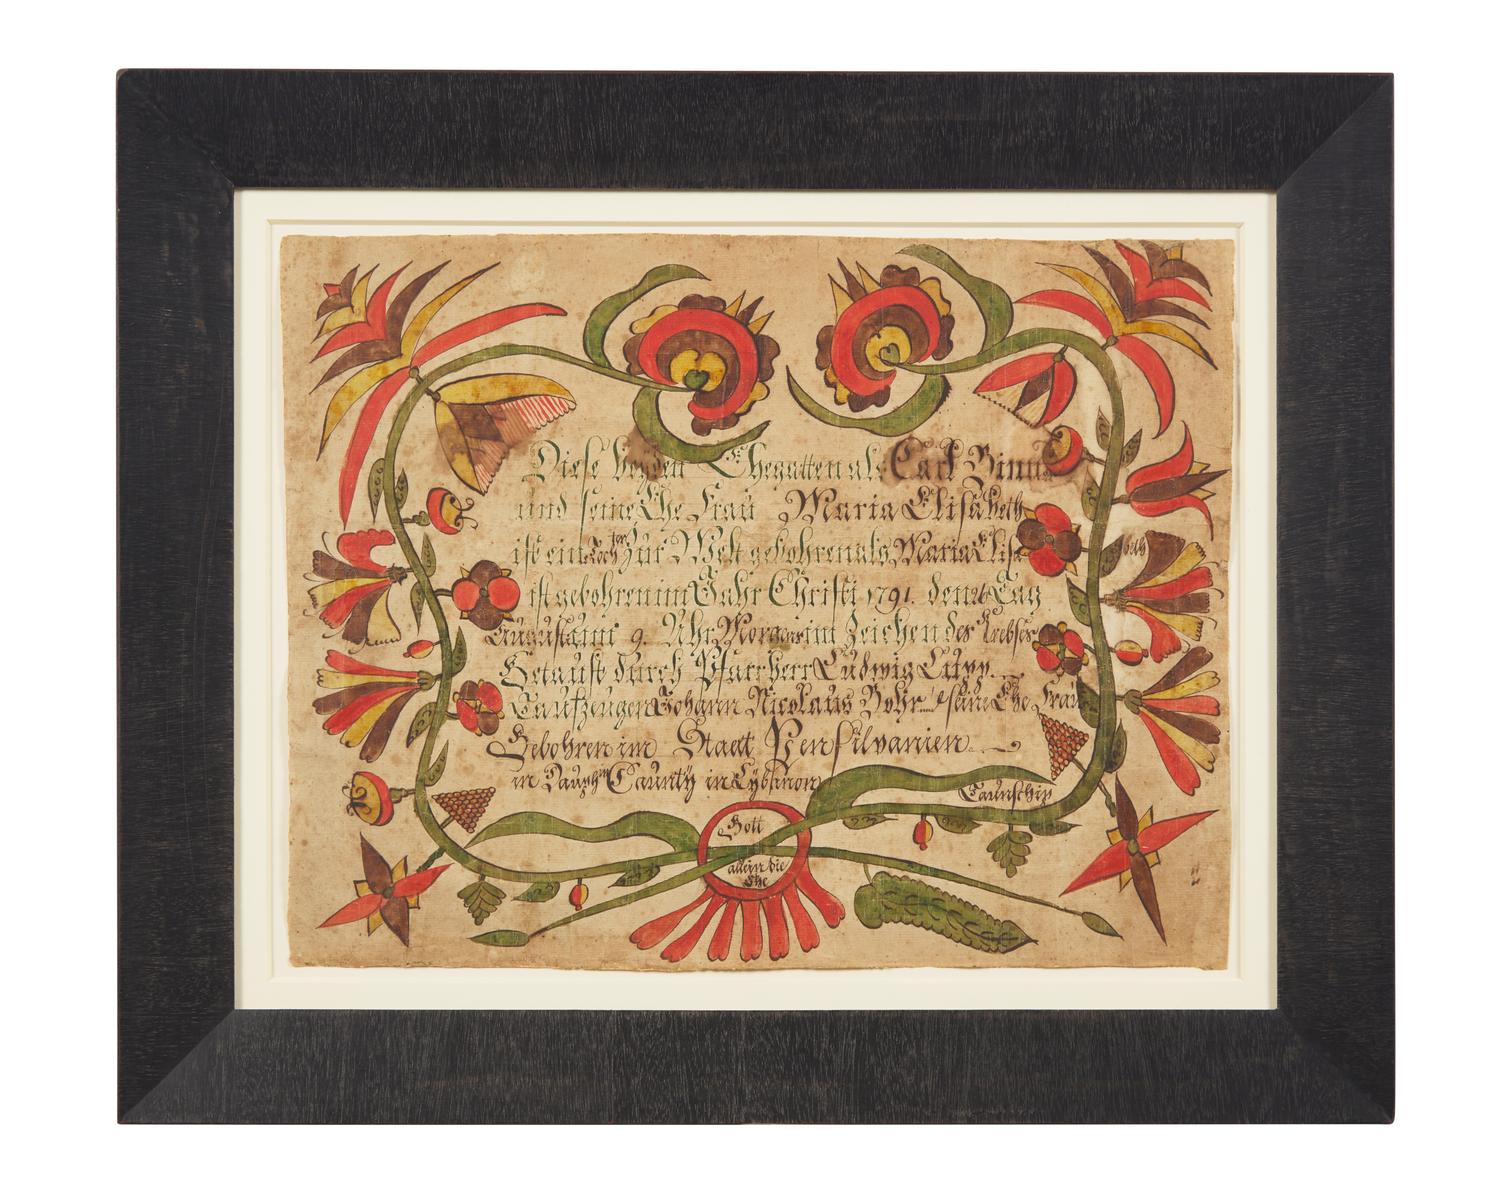 Diese beyden Ehegatten als Carl Binna
und seine Ehe Frau Maria Elisabeth
ist ein Tochter zur Welt gebohren als Maria Elisabeth
ist gebohren im Jahr Christi 1791. den Tag
Augustꝰ um 9. Uhr Morgens im Zeichen des Krebses
Getauft durch Pfarrherr Ludwig Lupp
Taufzeugen Johann Nicolaus Bohr seine Ehe Frau
Gebohren im Staat Pensilvanien
in Dauphin Caunty in Lybanon
Taunschip
Gott
allein die
Ehe